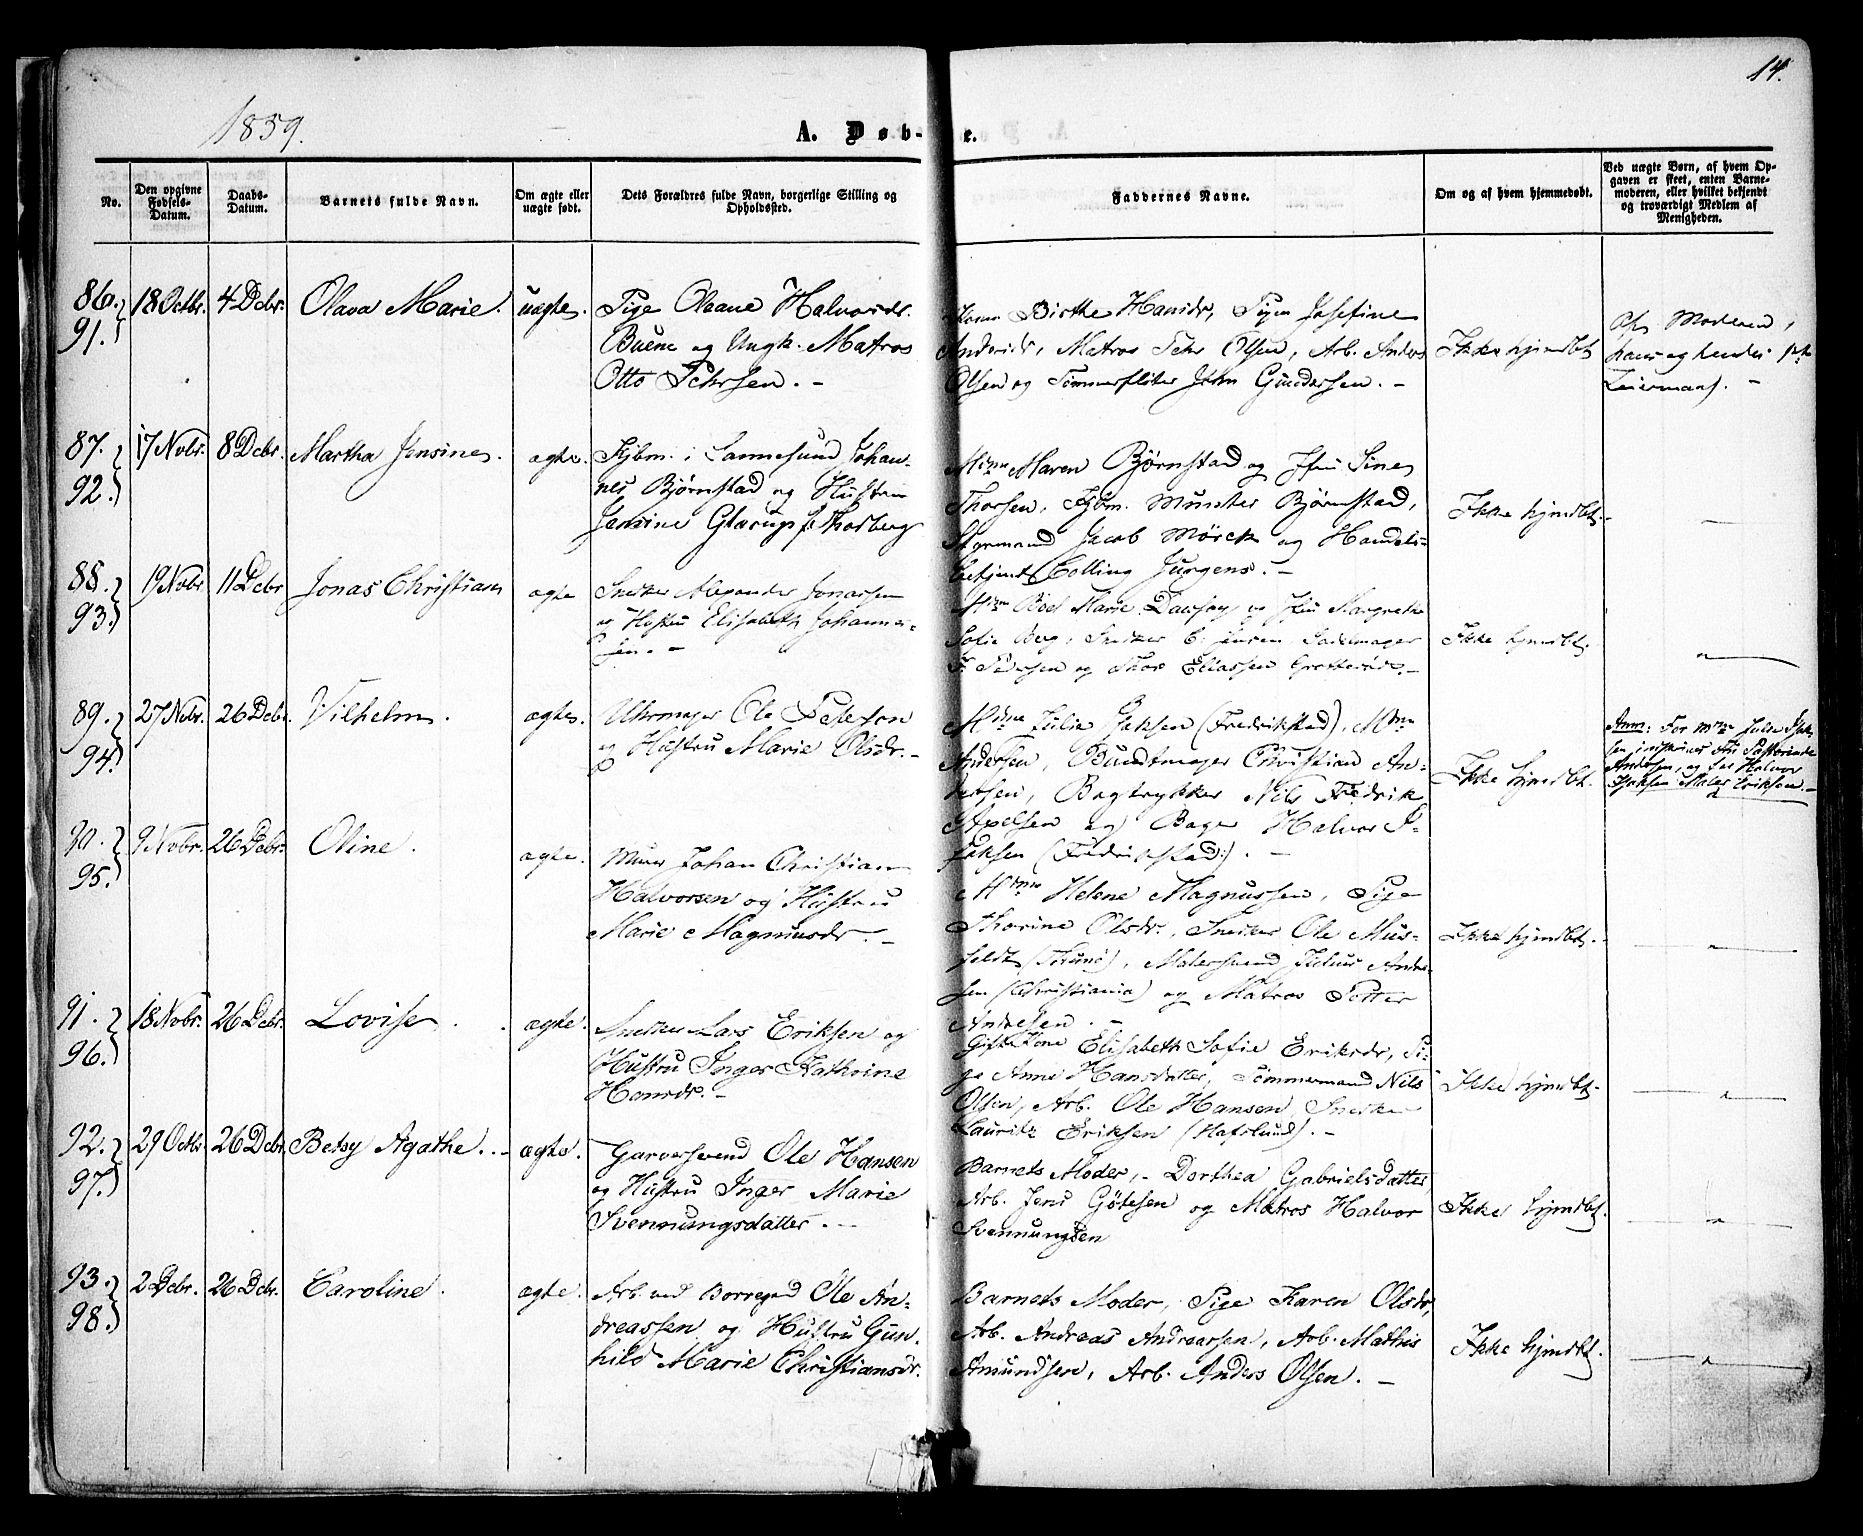 14.
1859.
A. Døb-te.
No.
Den opgivne Fødsels-Datum.
Daabs-Datum.
Barnets fulde Navn.
Om ægte eller uægte født.
Dets Forældres fulde Navn, borgerlige Stilling og Opholdssted.
Faddernes Navne.
Om og af hvem hjemmedøbt.
Ved uægte Børn, af hvem Opgaven er skeet, enten Barnemoderen, eller hvilket bekjendt og troværdigt Medlem af Menigheden.
86. 91. 18 Octbr. 4 Dcbr. Olava Marie. uægte.
Pige Oleane Halvorsdr.
Buene og Ungk. Matros
Otto Pehrsen. -
Kone Birthe Hansdr, Pigen Josefine
Andersdr, Matros Pehr Olsen, Arb. Anders
Olsen og Tømmerfløter John Gundersen. -
Ikke hjmdbt
Af Moderen,
hans og hendes
Leiermaal. -
87. 92. 17 Novbr. 8 Dcbr. Martha Jensine. ægte.
Kjbm. i Sannesund Johan-
nes Bjørnstad og Hustru
Jensine Glærup f. Thorberg
Mme Maren Bjørnstad og Jfru Sine
Thorsen, Kjbm. Munster Bjørnstad,
Styrmand Jacob Mørck og Handels-
betjent Colling Jurgens. -
Ikke hjmdbt. -
88. 93. 19 Novbr 11 Dcbr Jonas Christian ægte
Snedker Alexander Jonassen
og Hustru Elisabeth Johannes-
sen. -
Mme Boel Marie Jfru Margrethe
Sofie Berg, Snedker C. Jensen, Sadelmager
F. Pedersen og Thor Eliassen Grotterød. -
Ikke hjmdbt.
89. 94. 27 Novbr. 26 Dcbr. Vilhelm. ægte.
Uhrmager Ole Peterson
og Hustru Marie Olsdr. -
Mme Julie Isaksen (Fredrikstad), Mme
Andersen, Bundtmager Christian An-
dersen, Bogtrykker Nils Fredrik
Axelsen og Bager Halvor I-
saksen (Fredrikstad). -
Ikke hjmdbt.
Anm: For Mme Julie Isak-
sen
Andersen, og for Halvor
Isaksen Maler Eriksen. -
90. 95. 9 Novbr. 26 Dcbr. Oline. ægte.
Murer Johan Christian
Halvorsen og Hustru
Marie Magnusdr. -
Mme Helene Magnussen, Pige
Thorine Olsdr., Snedker Ole Mus-
feldt (Thunø), Malersvend Julius Andre-
sen (Christiania) og Matros Petter
Andresen. -
Ikke hjmdbt. -
91. 96. 18 Novbr. 26 Dcbr. Lovise. ægte.
Snedker Lars Eriksen og
Hustru Inger Kathrine
Hansdr. -
Gifte Kone Elisabeth Sofie Eriksdr, Pi-
ge Anne Hansdatter, Tømmermand Nils
Olsen, Arb. Ole Hansen, Snedker
Lauritz Eriksen (Hafslund). -
Ikke hjmdbt.
92. 97. 29 Octbr 26 Dcbr. Betsy Agathe. - ægte.
Garversvend Ole Hansen
og Hustru Inger Marie
Svennungsdatter. -
Barnets Moder, - Dorthea Gabrielsdatter,
Arb. Jens Gøtesen og Matros Halvor
Svennungsen
Ikke hjmdbt.
93. 98. 2 Dcbr. 26 Dcbr. Caroline. ægte.
Arb. ved Borregrd Ole An-
dreassen og Hustru Gun-
hild Marie Christiansdr.
Barnets Moder, Pige Karen Olsdr,
Arb. Andreas Andreassen, Arb. Mathis
Amundsen, Arb. Anders Olsen. -
Ikke hjmdbt.